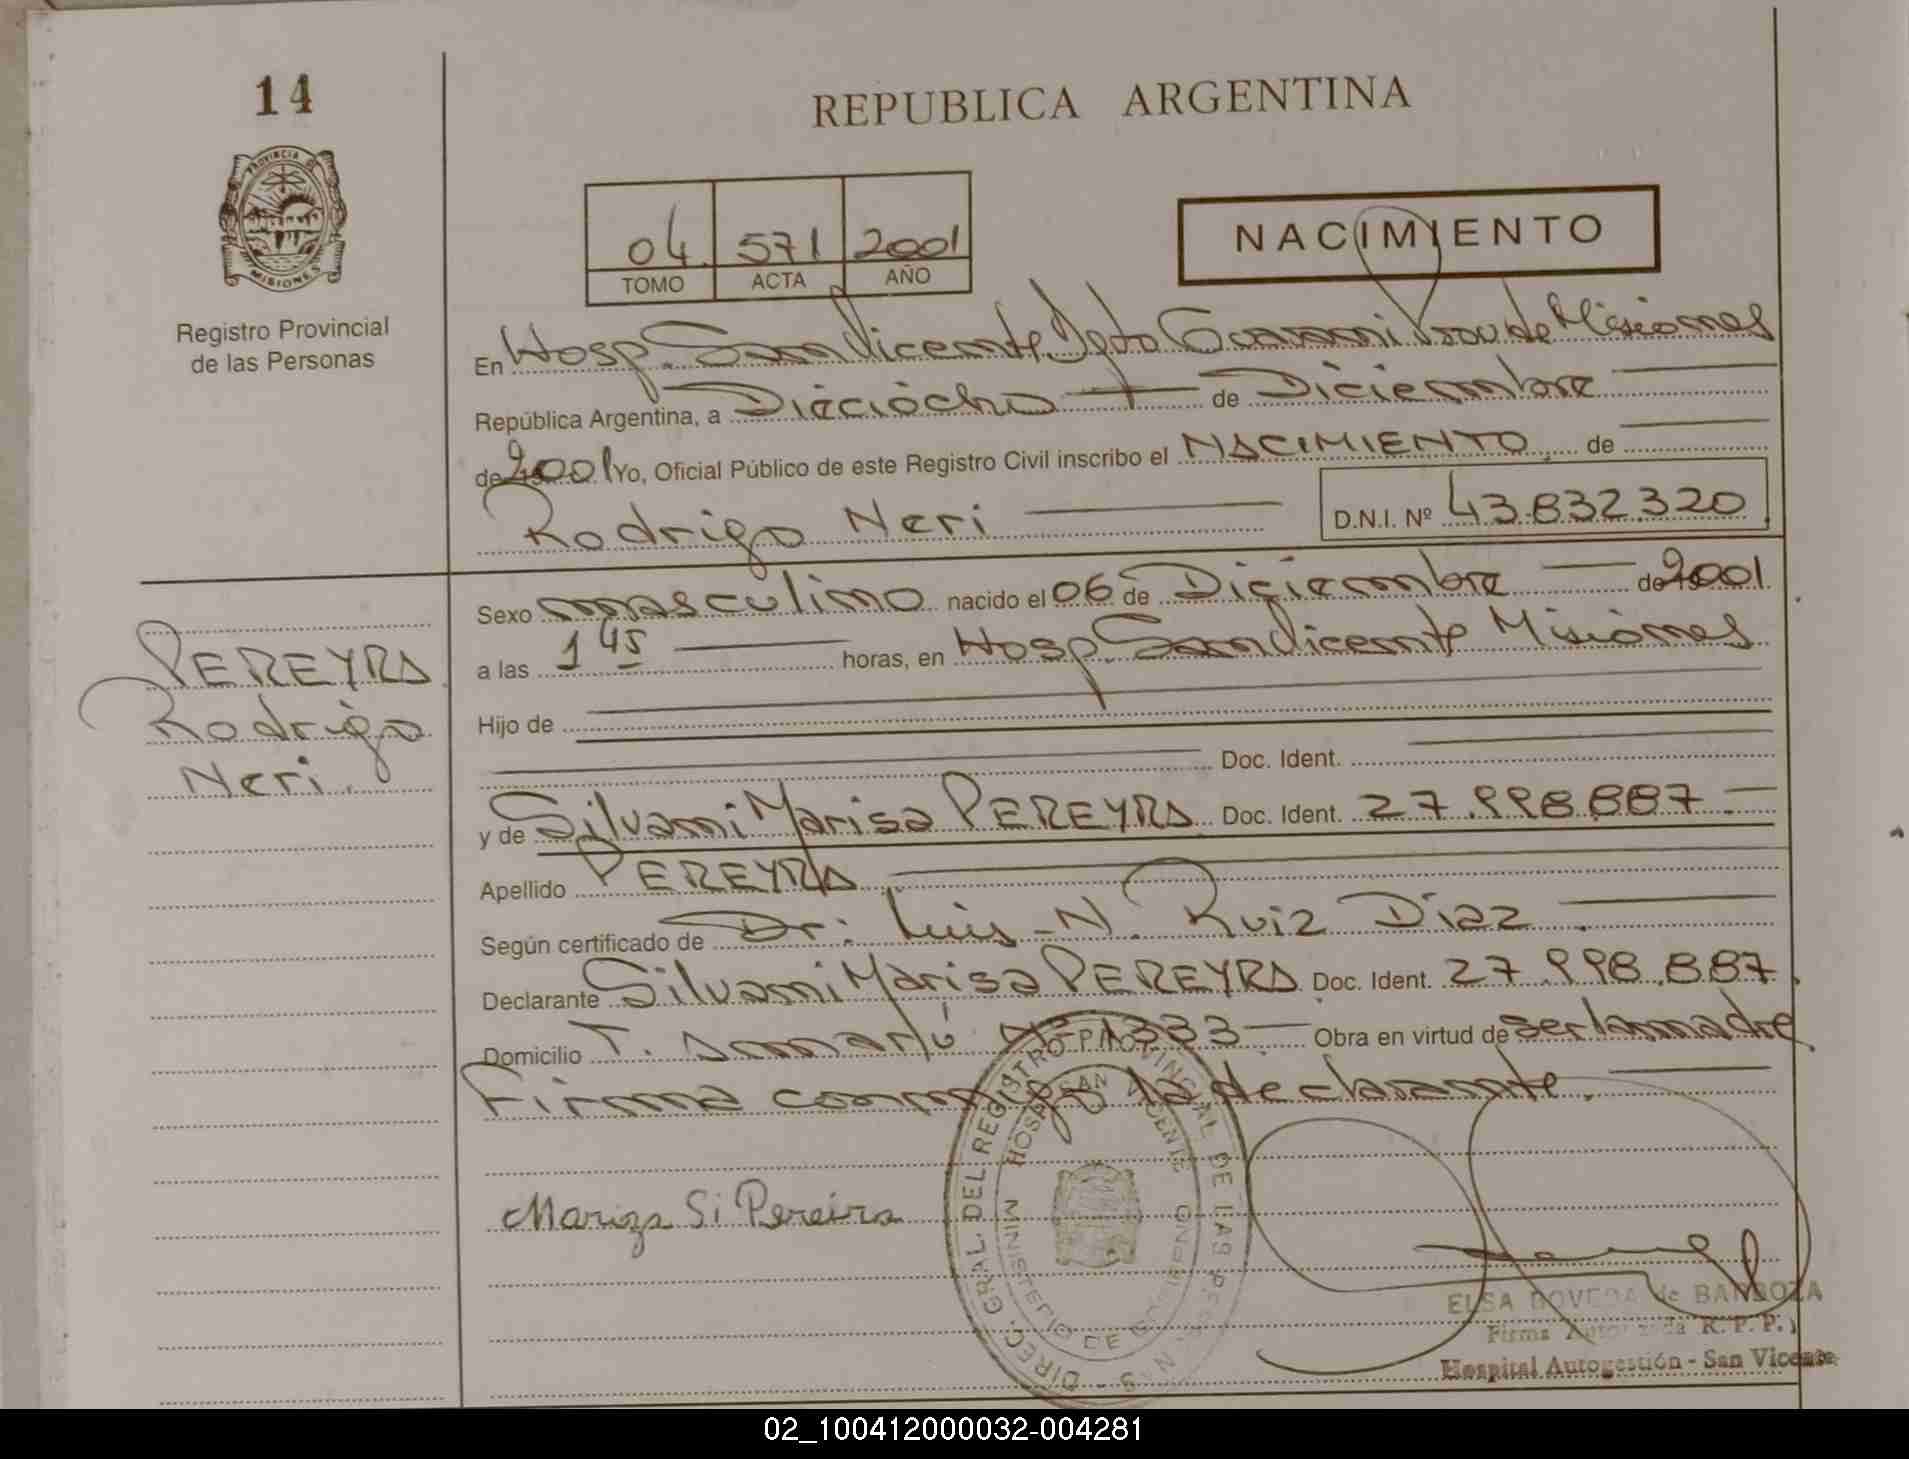 14
REPUBLICA ARGENTINA
PROVINCIA DE
MISIONES
Registro Provincial
de las Personas
04 571 2001
TOMO ACTA AÑO
NACIMIENTO
En Hosp. San Vicente Dpto Guaraní Prov. de Misiones
República Argentina, a Dieciocho de Diciembre
de 2001 Yo, Oficial Público de este Registro Civil inscribo el NACIMIENTO de
Rodrigo Neri D.N.I. Nº 43.832.320
Sexo masculino nacido el 06 de Diciembre de 2001
a las 1 45 horas, en Hosp. San Vicente Misiones
Hijo de
Doc. Ident.
y de Silvani Marisa PEREYRA Doc. Ident. 27.998.887
Apellido PEREYRA
Según certificado de Dr. Luis N. Ruiz Diaz
Declarante Silvani Marisa PEREYRA Doc. Ident. 27.998.887
Domicilio T. Amarú Nº 1333 Obra en virtud de ser la madre
Firma conmigo la declarante.
PEREYRA
Rodrigo
Neri.
Mariza Si Pereira
DIREC. GRAL. DEL REGISTRO PROVINCIAL DE LAS PERSONAS
HOSP. SAN VICENTE
MINISTERIO DE
ELSA de BARBOZA
Firma Autorizada R. P. P.
Hospital Autogestión - San Vicente
02_100412000032-004281